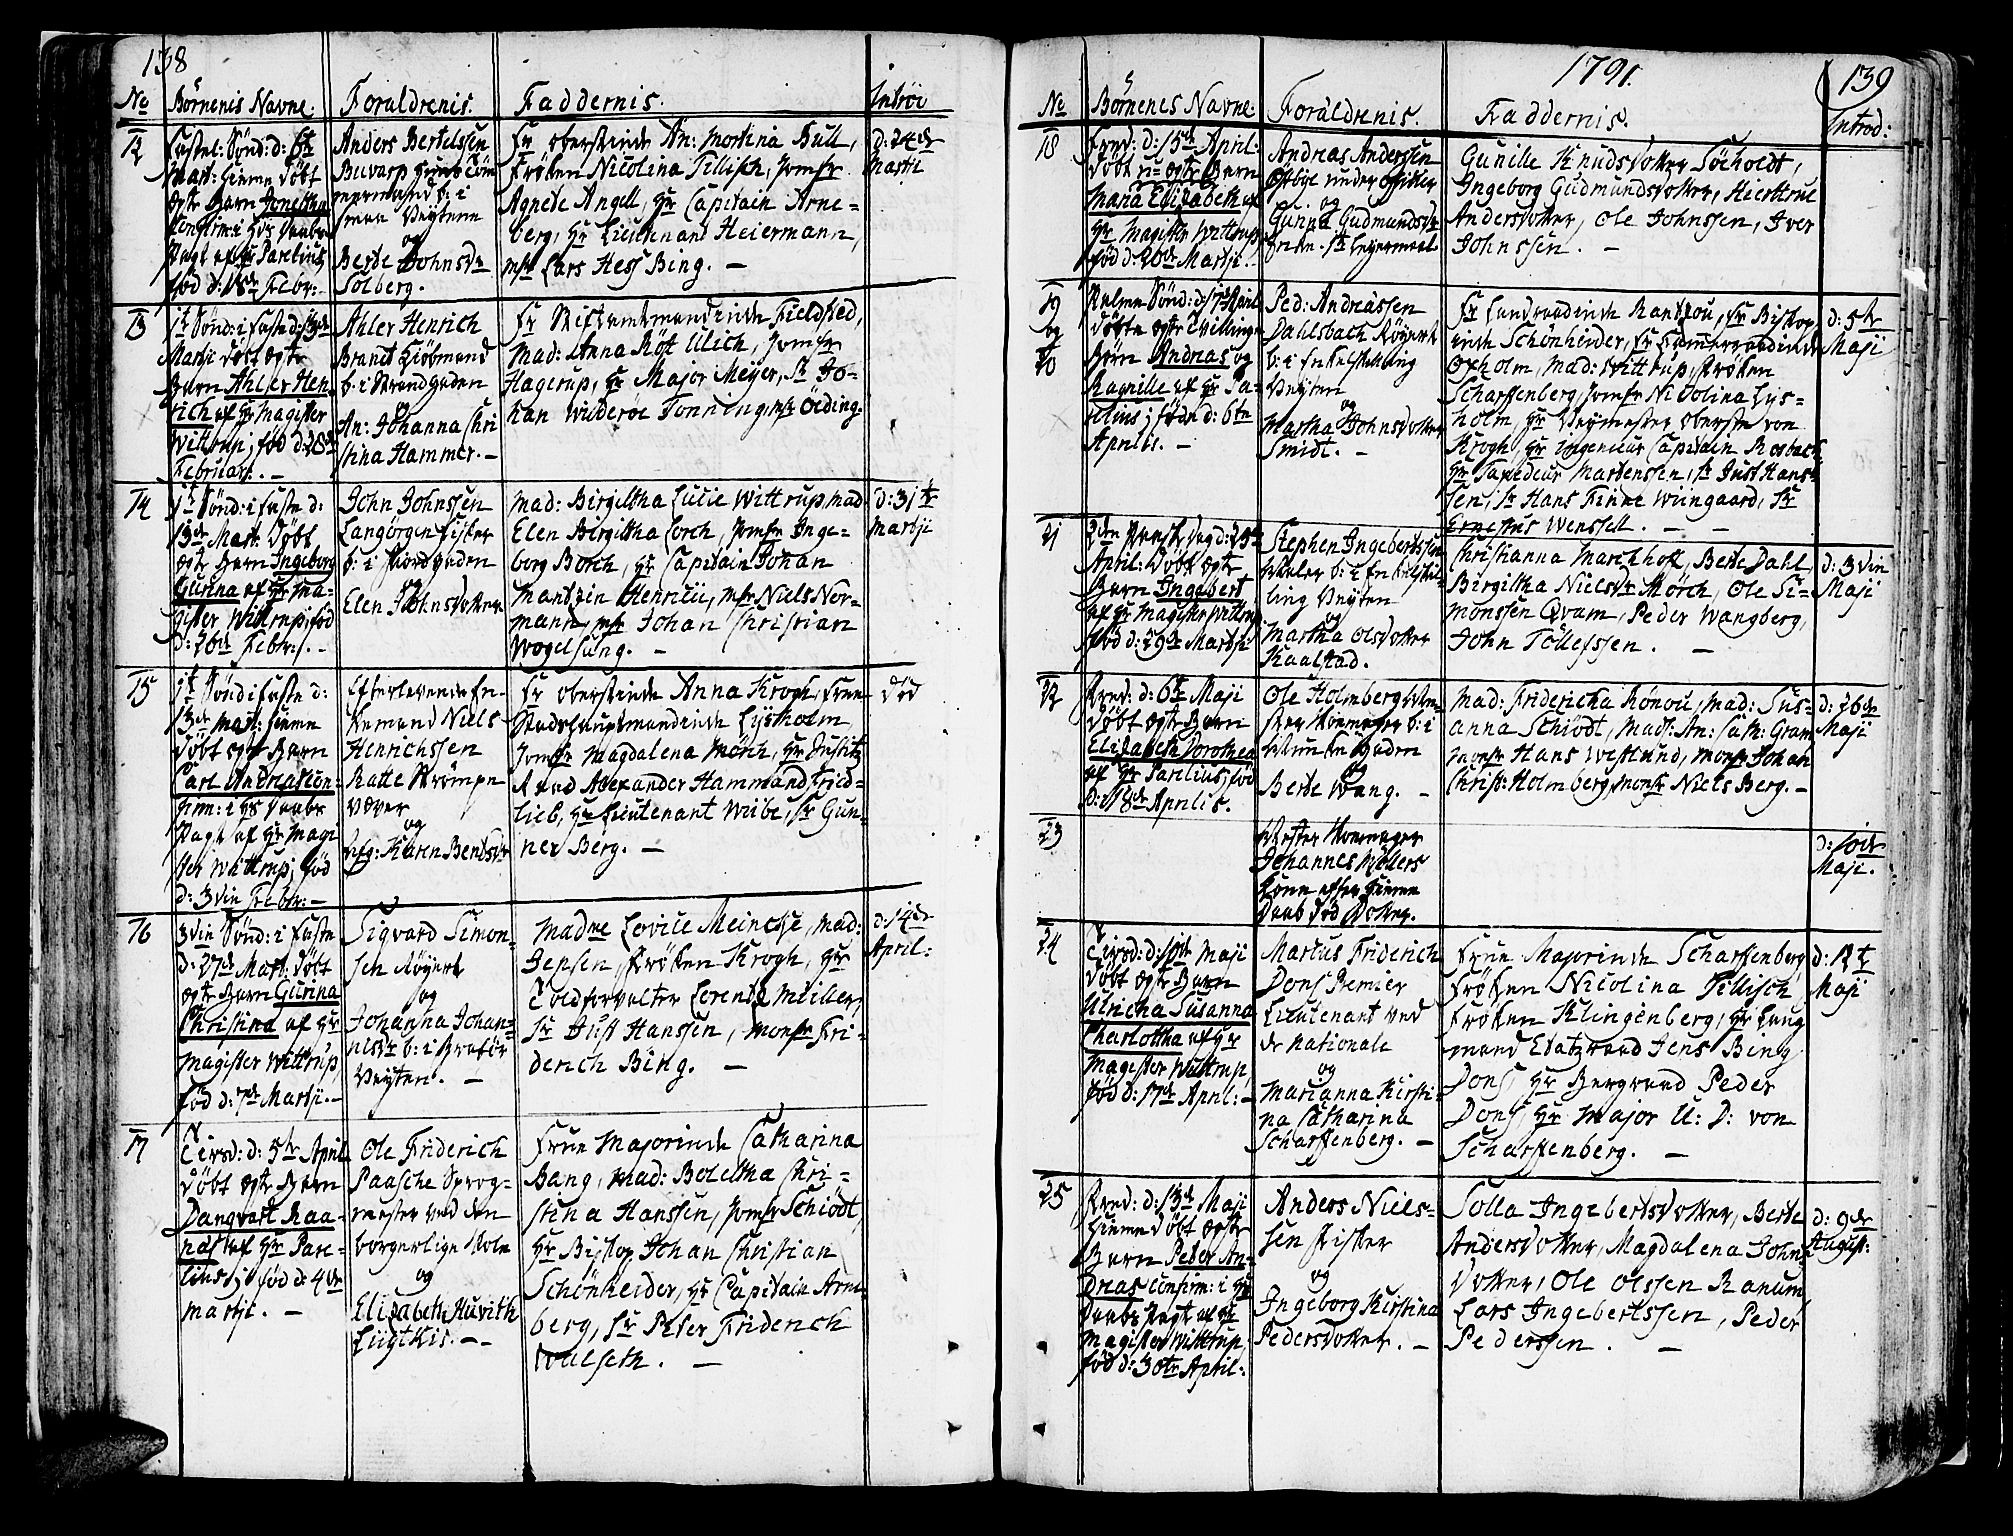 138
No
Börnenis Navne.
Foraldrenis.
Faddernis.
Introd
12
Fastel: Sönd: d: 6te
Mart: hieme Döbt
ægte Barn Jonetha
confirm: i hds Daabs
Pagt af Hr Parelius
fød d: 18de Febr: –
Anders Bertelssen
Buvarp huus Töm
mermand b: i
Veyten
og
Berte Johnsdr
Solberg.
Fr Oberstinde An: Mortina Bull,
Fröken Nicolina Tillisch, Jomfr
Agnete Angell, Hr Capitain Arne=
berg, Hr Lieutnant Heiermann,
msr Lars Hess Bing. –
d: 24de
Martii
13
1te Sönd: i Faste d: 13de
Martii Döbt ægte
Barn Ahler Hen
rich af Hr Magister
Wittrup; fød d: 28de
Februari. –
Ahler Henrich
Brandt Kiöbmand
b: i Strandgaden
og
An: Johanna Chri
stina Hammer. –
Fr Stiftamtmandinde Fieldsted,
Mad: Anna Röt Ulich, Jomfr
Hagerup, Hr Major Meyer, Sr Jo=
han Widerøe Tonning, msr Oeding.
14
1te Sönd: i Faste d:
13de Mart: Döbt
ægte Barn Ingeborg
Gurina af Hr Ma=
gister Wittrup; fød
d: 26de Febr: –
John Johnssen
Langörgen Fisker
b: i Fiordgaden
og
Elen Johnsdotter
Mad: Birgiltha Lucie Wittrup, mad
Elen Birgiltha Lorch, Jomfr Inge=
borg Borch, Hr Capitain Johan
Mantzin Henrici, msr Niels Nor=
mann, msr Johan Christian
Vogelsang. –
d: 31te
Martji
15
1te Sönd i Faste d:
13de Mart: hieme
Döbt ægte Barn
Carl Andreas con=
firm: i hs Daabs
Pagt af Hr Magi
ster Wittrup; fød
d: 3die Febr: –
Efterlevende En=
kemand Niels
Henrichssen
Ratte Strömpe
Væver
og
afg: Karen Bendsdr
Fr Oberstinde Anna Krogh, Frue
Stadshauptmandinde Lysholm
Jomfr Magdalena Mörch, Hr Justitz
Raad Alexander Hammond Fried=
lieb, Hr Lieutenant Wibe, Sr Gun=
ner Berg. –
død
16
3die Sönd: i Faste
d: 27de Mart: Döbt
ægte Barn Gurina
Christina af Hr
Magister Wittrup,
fød d: 7de Martji. –
Sigvard Simon=
sen Röyert
og
Johanna Johan=
nesdr b: i Bratör
Veyten. –
Madme Lovice Meincke, mad:
Jepsen, Fröken Krogh, Hr
Toldforvalter Lorentz Müller,
Sr Just Hanssen, Monsr Fri=
derich Bing. –
d: 14de
April:
17
Tirsd: d: 5te April
Döbt ægte Barn
Dangvart Raa=
nas af Hr Pare=
lius; fød d: 4de
Martji. –
Ole Friderich
Paasche Sprog=
mester ved den
borgerlige Skole
og
Elizabeth Huvith
Lügtkis. –
Frue Majorinde Catharina
Bang, mad: Boleltha Chri=
stina Hanssen, Jomfr Schiödt,
Hr Biskop Johan Christian
Schönheider, Hr Capitain Arne
berg, Sr Peter Friderich
Walseth. –
1791.
139
No
Börnenes Navne.
Foraldrenis.
Faddernis.
Introd:
18
Fred: d: 15de April:
Döbt u=ægte Barn
Maria Elizabeth af
Hr Magister Wittrup
fød d: 20de Martji. –
Andreas Anderssen
Östbye under Officer
og
Gunna Gudmundsdr
Leyermaal
Gunille Knudsdotter Soeholdt,
Ingeborg Gudmundsdotter, Hierttrue
Andersdotter, Ole Johnssen, Iver
Johnssen. –
19
og
20
Palme Sönd: d: 17de April
Döbte ægte Tvillinge
Börn Andreas og
Ragnille af Hr Pa=
relius; fødte d: 6te
Aprilis. –
Ped: Andreassen
Dahlsbach Röyert
b: i Enkelskilling
Veyten
og
Martha Johnsdotter
Smidt. –
Fr Landraadinde Rantzou, Fr Biskop
inde Schönheider, Fr Kammerraadinde
Oxholm, Mad: Wittrup, Fröken
Scharffenberg, Jomfr Nicolina Lys=
holm, Hr Veymester Oberste von
Krogh, Hr Ingenieur Capitain Rosbach
Hr Tapedeur Martenssen, Sr Just Hans=
sen, Sr Hans Finne Wiingaard, Sr
Ernestus Wenssell. – –
d: 5te
Maji
21
2den Paaske Dag d: 25de
April: Döbt ægte
Barn Ingebert
af Hr Magister Wittrup
fød d: 29de Martji
Stephen Ingebertssen
Maler b: i Enkelskil=
ling Veyten
og
Martha Olsdotter
Kaalstad.
Christianna Marchhoff, Berte Dahl,
Birgiltha Nielsdr Mörch, Ole Si=
monssen Qvam, Peder Wangberg,
John Tollefssen. –
d: 3die
Maji
22
Fred: d: 6te Maji
Döbt ægte Barn
Elizabeth Dorothea
af Hr Parelius; fød
d: 18de Aprilis.
Ole Holmberg Me
ster Skoemager b: i
Gaden
og
Berte Wang. –
Mad: Fridericha Rönou, mad: Sus=
anna Schiödt, Mad: An: Cath: Gram
monsr Hans Westlund, Monsr Johan
Christ: Holmberg, monsr Niels Berg. –
d: 26de
Maji
23
Mester Skoemager
Johannes Möllers
Kone efter hieme
Daab död Dotter.
d: 10de
Maji.
24
Tirsd: d: 10de Maji
Döbt ægte Barn
Ulricha Susanna
Charlottha af Hr
Magister Wittrup,
fød d: 17de April: –
Martus Friderich
Dons Premier
Lieutenant ved
de Nationale
og
Marianna Kirsti=
na Catharina
Scharffenberg. –
Frue Majorinde Scharffenberg
Fröken Nicolina Tillisch
Fröken Klingenberg, Hr Laug
mand Etatzraad Jens Bing
Dons, Hr Bergraad Peder
Dons, Hr Major U: D: von
Scharffenberg. –
d: 12te
Maji
25
Fred: d: 13de Maji
hieme Döbt ægte
Barn Peder An=
dreas confirm: i hs
Daabs Pagt af Hr
Magister Wittrup,
fød d: 30te April:
Anders Niels=
sen Fisker
og
Ingeborg Kirstina
Pedersdotter. –
Solla Ingebertsdotter, Berte
Andersdotter, Magdalena Johns
dotter, Ole Olssen Ranum,
Lars Ingebertssen, Peder
Pederssen. –
d: 9de
August: